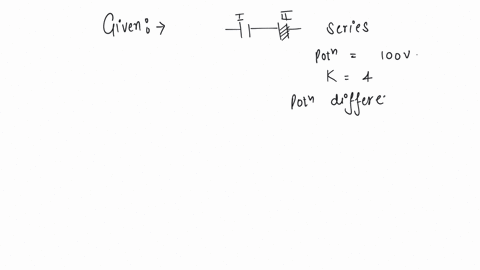 Given:→ I II series
Potⁿ = 100V
K = 4
Potⁿ differe